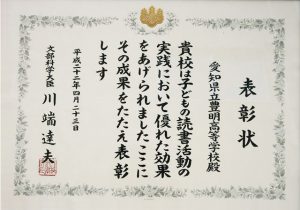 表彰状
愛知県立豊明高等学校殿
貴校は子どもの読書活動の
実践において優れた効果
をあげられましたここに
その成果をたたえ表彰
します
平成二十二年四月二十三日
文部科学大臣 川端達夫